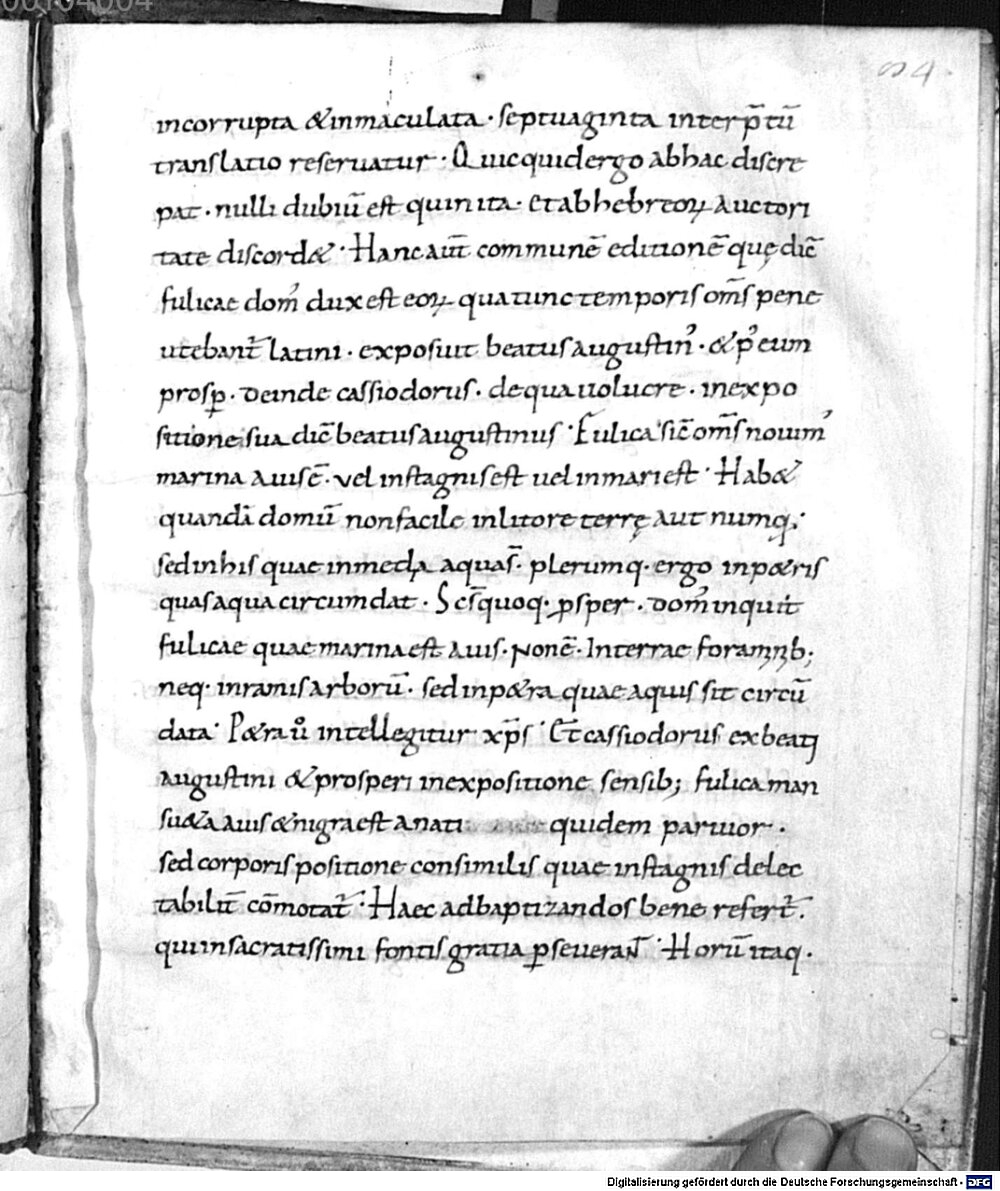 00104004
94
incorrupta &inmaculata · septuaginta interp̄tū
translatio reseruatur · Quicquid ergo ab hac discre
pat · nulli dubiū est quin ita · et ab hebreoꝝ auctori
tate discord& · Hanc aut̄ communē editionē quę dic̄
fulicae dom̄ dux est eoꝝ qua tunc temporis om̄s pene
utebant̄ latini · exposuit beatus augustin᾽ · & p᾽ eum
prosꝑ · deinde cassiodorus · de qua uolucre · in expo
sitione sua dic̄ beatus augustinus · Fulica sic̄ om̄s nouim᾽
marina auis ē · vel in stagnis est uel in mari est · Hab&
quandā domū non facile in litore terrę aut numq;
sed in his quae in media aquas̄ · plerumq · ergo in p&ris
quas aqua circumdat · Sc̄s quoq · ꝓsper · dom̄ inquit
fulicae quae marina est auis · non ē · In terrae foraminib;
neq · in ramis arborū · sed in p&ra quae aquis sit circū
data · P&ra ů intellegitur xp̄s · Et cassiodorus ex beati
augustini & prosperi in expositione sensib; fulica man
su&a auis & nigra est anati quidem paruior ·
sed corporis positione consimilis quae in stagnis delec
tabilit̄ cōmorat̄ · Haec ad baptizandos bene refert̄ ·
qui in sacratissimi fontis gratia ꝑseuerant̄ · Horū itaq ·
Digitalisierung gefördert durch die Deutsche Forschungsgemeinschaft - DFG